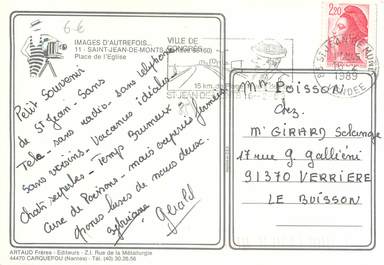 6 €
IMAGES D'AUTREFOIS...
11 - SAINT-JEAN-DE-MONTS (Vendée 85160)
Place de l'Eglise
VILLE DE
16 km de
ST-JEAN DE MONTS
1989
VENDEE
2,20
Petit Souvenir
de St Jean - Sans
Télé - sans radio - sans téléphone
sans voisins - Vacances idéales -
Temps Brumeux -
Cure de Poissons - mais
de nous deux.
Gérald
Mr Poisson
chez
Mr GIRARD Solange
17 rue g. galliéni
91370 VERRIÈRE
LE BUISSON
ARTAUD Frères - Editeurs - Z.I. Rue de la Métallurgie
44470 CARQUEFOU (Nantes) - Tél. (40) 30.26.56